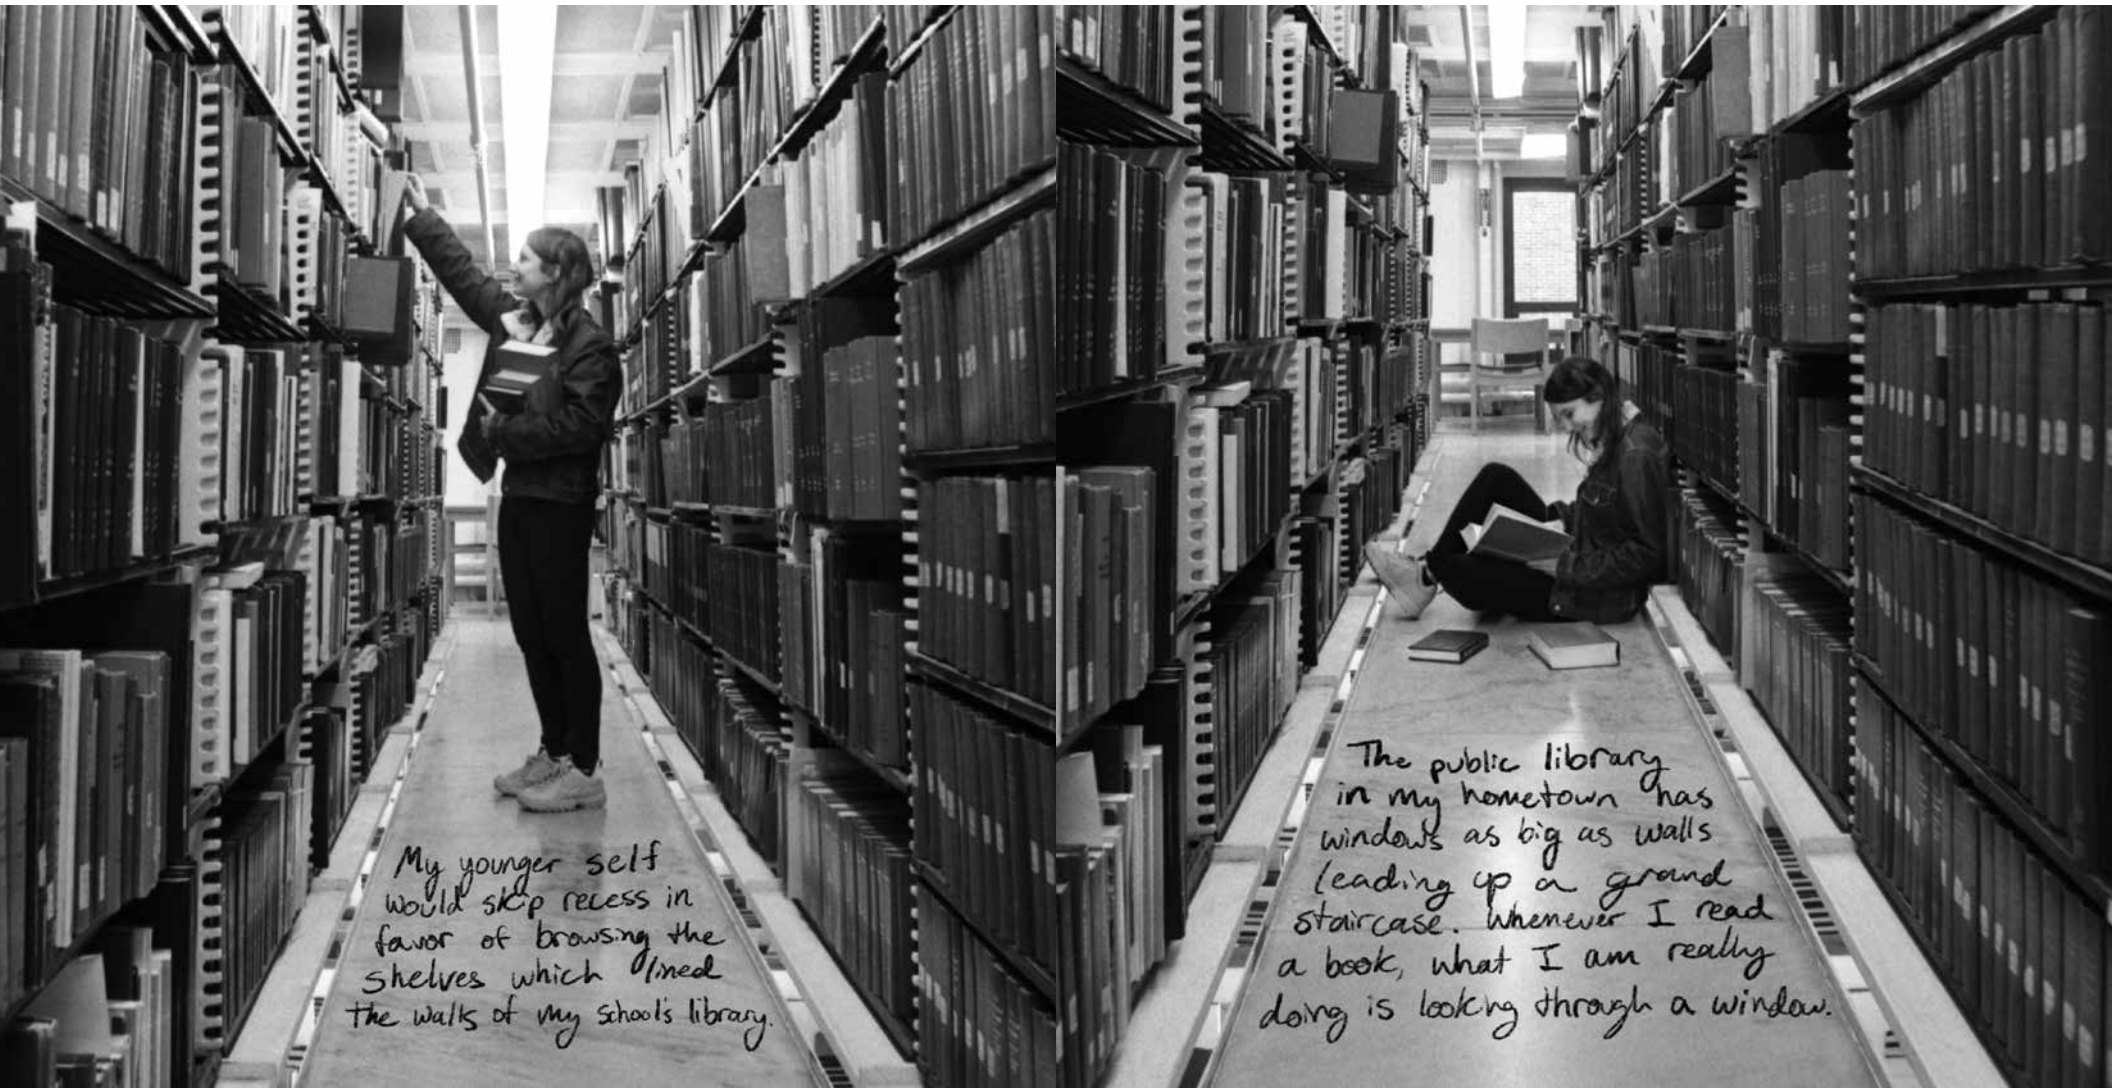 My younger self
would skip recess in
favor of browsing the
shelves which lined
the walls of my school's library.
The public library
in my hometown has
windows as big as walls
leading up a grand
staircase. Whenever I read
a book, what I am really
doing is looking through a window.